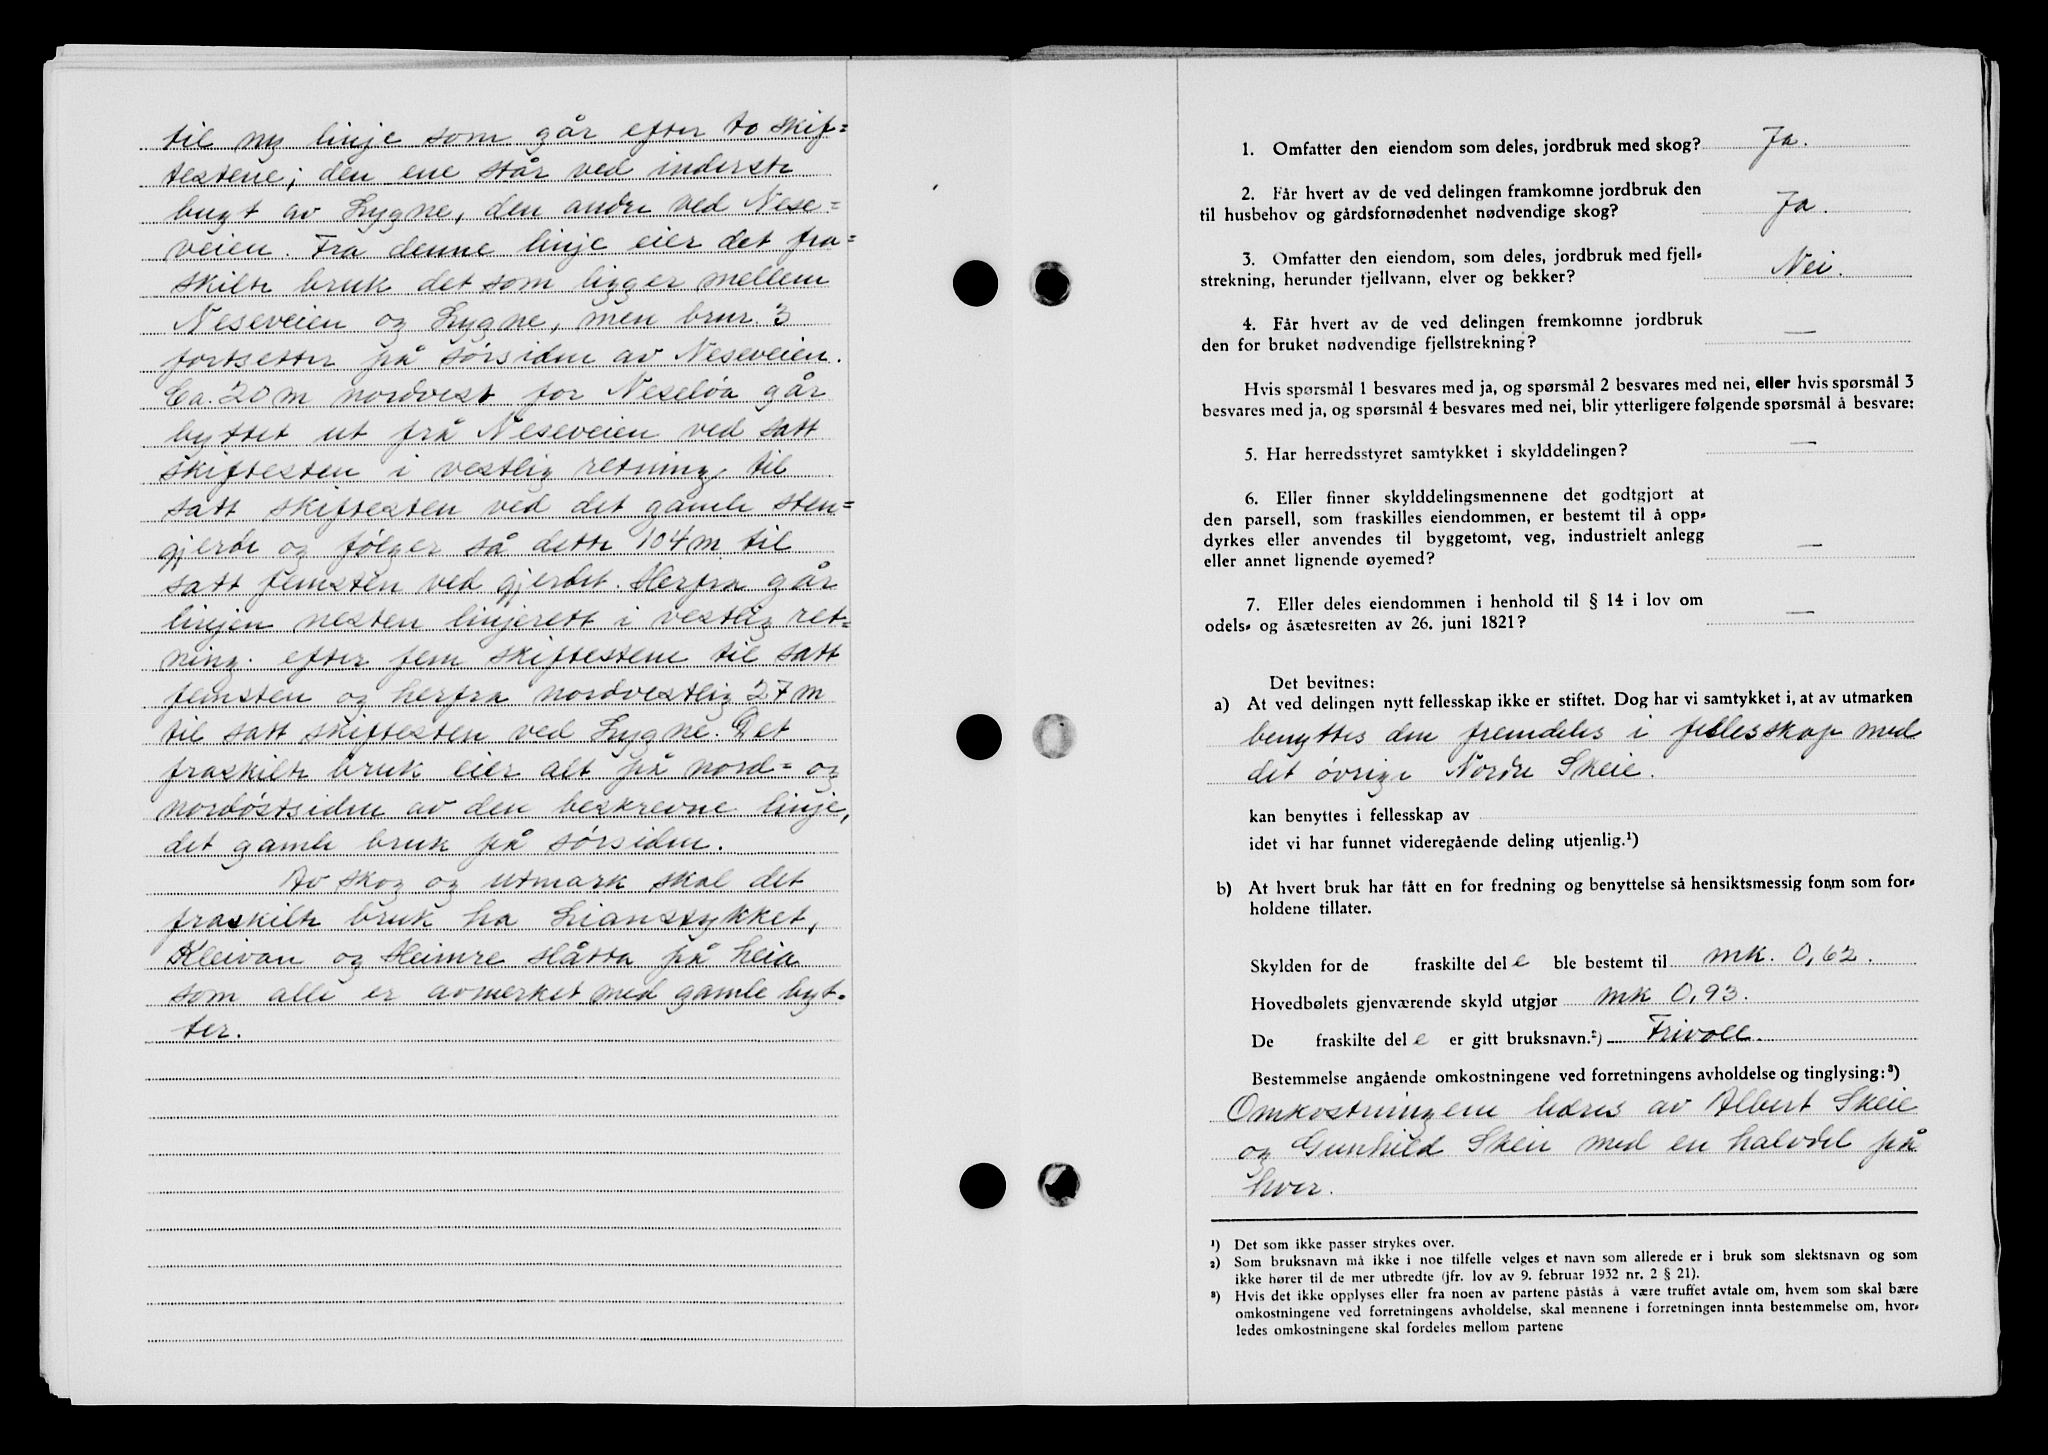 til ny linje som går efter to skif=
testene; den ene står ved inderste
bugt av Lygne, den andre ved Nese=
veien. Fra denne linje eier det fra=
skilte bruk det som ligger mellem
Neseveien og Lygne, men brnr. 3
fortsetter på sørsiden av Neseveien.
Ca. 20 m nordvest for Neseløa går
byttet ut frå Neseveien ved satt
skiftesten i vestlig retning, til
satt skiftesten ved det gamle sten=
gjerde og følger så dette 104 m til
satt femsten ved gjerdet. Herfra går
linjen nesten linjerett i vestlig ret=
ning. efter fem skiftestene til satt
femsten og herfra nordvestlig 27 m
til satt skiftesten ved Lygne. Det
fraskilte bruk eier alt på nord= og
nordøstsiden av den beskrevne linje,
det gamle bruk på sørsiden.
Av skog og utmark skal det
fraskilte bruk ha Lianstykket,
Kleivan og Heimre Slåtta på heia
som alle er avmerket med gamle byt-
ter.
1. Omfatter den eiendom som deles, jordbruk med skog? Ja.
2. Får hvert av de ved delingen framkomne jordbruk den
til husbehov og gårdsfornødenhet nødvendige skog? Ja.
3. Omfatter den eiendom, som deles, jordbruk med fjell-
strekning, herunder fjellvann, elver og bekker? Nei.
4. Får hvert av de ved delingen fremkomne jordbruk
den for bruket nødvendige fjellstrekning? —
Hvis spørsmål 1 besvares med ja, og spørsmål 2 besvares med nei, eller hvis spørsmål 3
besvares med ja, og spørsmål 4 besvares med nei, blir ytterligere følgende spørsmål å besvare:
5. Har herredsstyret samtykket i skylddelingen? —
6. Eller finner skylddelingsmennene det godtgjort at
den parsell, som fraskilles eiendommen, er bestemt til å opp-
dyrkes eller anvendes til byggetomt, veg, industrielt anlegg
eller annet lignende øyemed? —
7. Eller deles eiendommen i henhold til § 14 i lov om
odels- og åsætesretten av 26. juni 1821? —
Det bevitnes:
a) At ved delingen nytt fellesskap ikke er stiftet. Dog har vi samtykket i, at av utmarken
benyttes den fremdeles i fellesskap med
det øvrige Nordre Skeie.
kan benyttes i fellesskap av
idet vi har funnet videregående deling utjenlig.¹)
b) At hvert bruk har fått en for fredning og benyttelse så hensiktsmessig form som for-
holdene tillater.
Skylden for de fraskilte dele ble bestemt til mk. 0,62.
Hovedbølets gjenværende skyld utgjør mk 0,93.
De fraskilte dele er gitt bruksnavn.²) Frivoll.
Bestemmelse angående omkostningene ved forretningens avholdelse og tinglysing:³)
Omkostningene bæres av Albert Skeie
og Gunhild Skeie med en halvdel på
hver.
¹) Det som ikke passer strykes over.
²) Som bruksnavn må ikke i noe tilfelle velges et navn som allerede er i bruk som slektsnavn og som
ikke hører til de mer utbredte (jfr. lov av 9. februar 1932 nr. 2 § 21).
³) Hvis det ikke opplyses eller fra noen av partene påstås å være truffet avtale om, hvem som skal bære
omkostningene ved forretningens avholdelse, skal mennene i forretningen innta bestemmelse om, hvor-
ledes omkostningene skal fordeles mellom partene